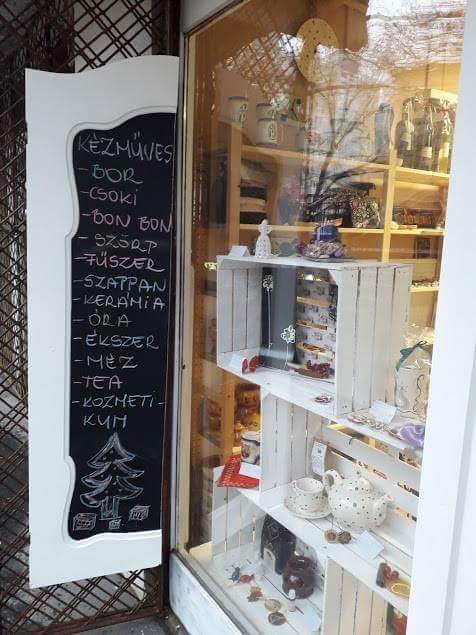 KÉZMŰVES
- BOR
- CSOKI
- BON BON
- SZÖRP
- FŰSZER
- SZAPPAN
- KERÁMIA
- ÓRA
- ÉKSZER
- MÉZ
- TEA
- KOZMETI-
KUM